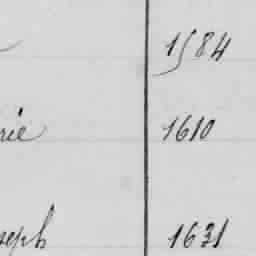 1584
rie 1610
seph 1631